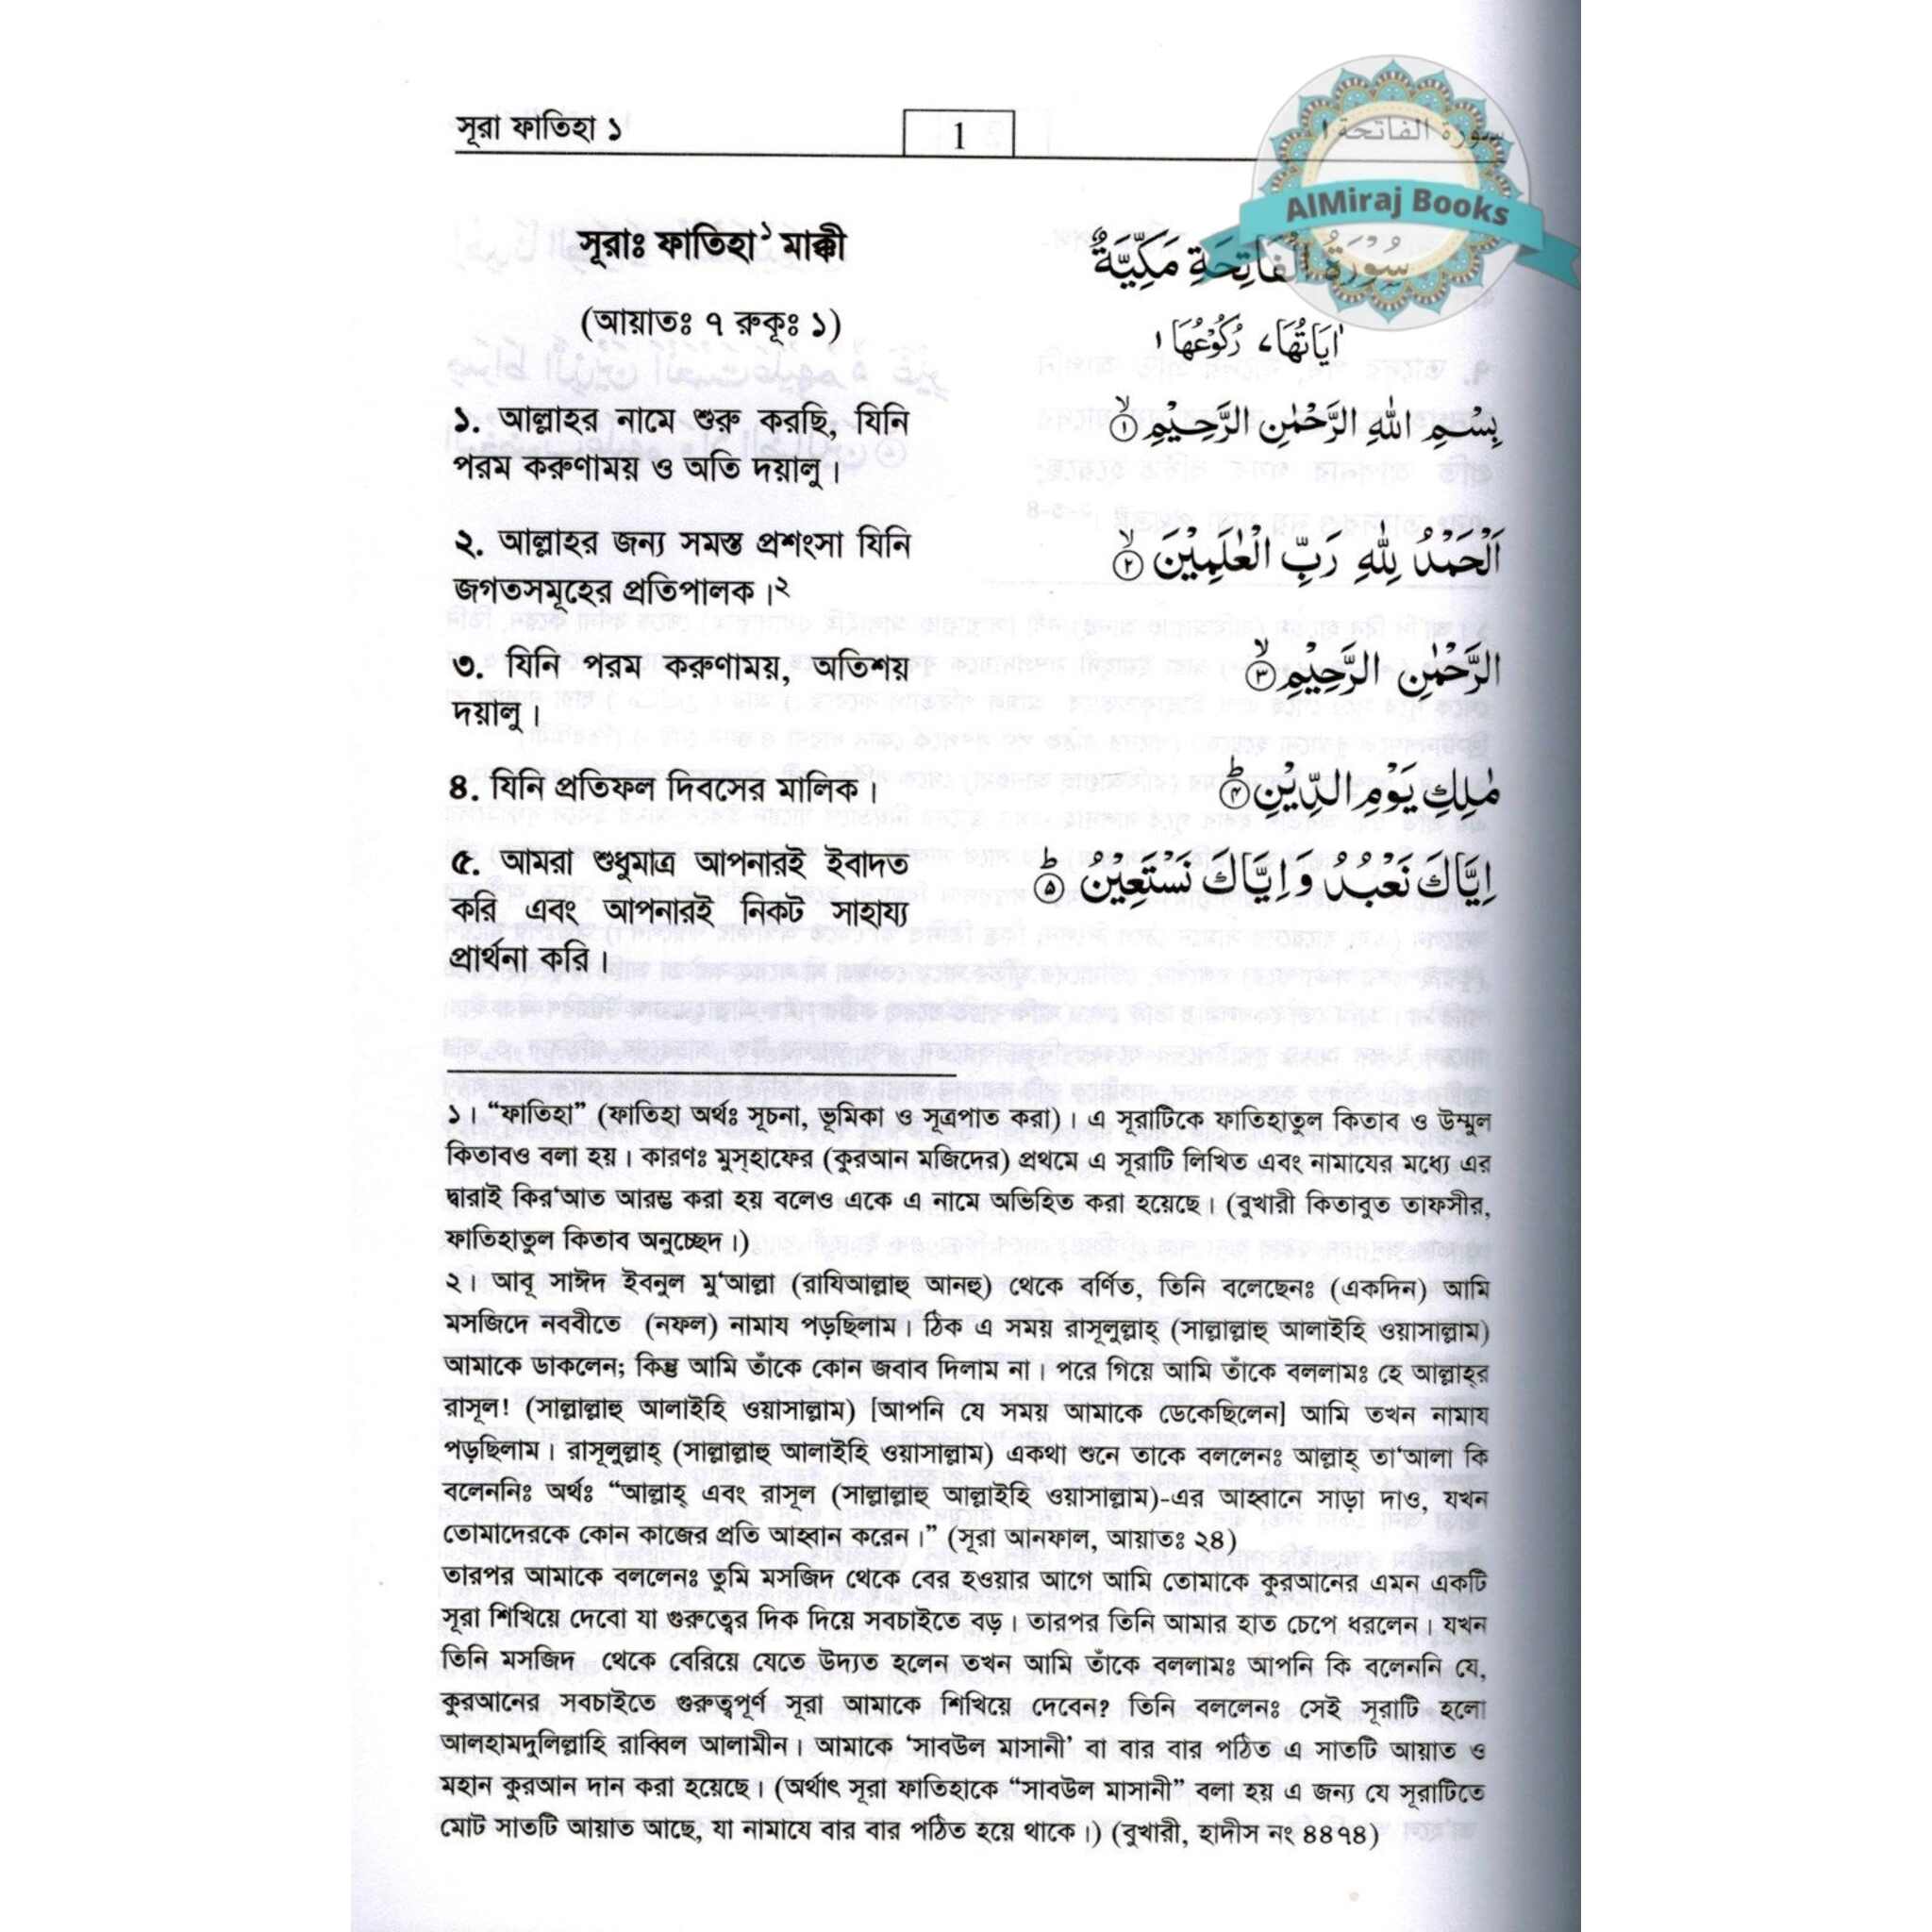 সূরা ফাতিহা ১
1
سورة الفاتحة ١
AlMiraj Books
সূরাঃ ফাতিহা১ মাক্কী
سُوْرَةُ الْفَاتِحَةِ مَكِّيَّةٌ
(আয়াতঃ ৭ রুকূঃ ১)
اٰيَاتُهَا ٧ رُكُوْعُهَا ١
১. আল্লাহর নামে শুরু করছি, যিনি
পরম করুণাময় ও অতি দয়ালু।
بِسْمِ اللّٰهِ الرَّحْمٰنِ الرَّحِيْمِ ۙ﴿١﴾
২. আল্লাহর জন্য সমস্ত প্রশংসা যিনি
জগতসমূহের প্রতিপালক।২
اَلْحَمْدُ لِلّٰهِ رَبِّ الْعٰلَمِيْنَ ۙ﴿٢﴾
৩. যিনি পরম করুণাময়, অতিশয়
দয়ালু।
الرَّحْمٰنِ الرَّحِيْمِ ۙ﴿٣﴾
৪. যিনি প্রতিফল দিবসের মালিক।
مٰلِكِ يَوْمِ الدِّيْنِ ؕ﴿٤﴾
৫. আমরা শুধুমাত্র আপনারই ইবাদত
করি এবং আপনারই নিকট সাহায্য
প্রার্থনা করি।
اِيَّاكَ نَعْبُدُ وَاِيَّاكَ نَسْتَعِيْنُ ؕ﴿٥﴾
১। “ফাতিহা” (ফাতিহা অর্থঃ সূচনা, ভূমিকা ও সূত্রপাত করা)। এ সূরাটিকে ফাতিহাতুল কিতাব ও উম্মুল
কিতাবও বলা হয়। কারণঃ মুস্হাফের (কুরআন মজিদের) প্রথমে এ সূরাটি লিখিত এবং নামাযের মধ্যে এর
দ্বারাই কির‘আত আরম্ভ করা হয় বলেও একে এ নামে অভিহিত করা হয়েছে। (বুখারী কিতাবুত তাফসীর,
ফাতিহাতুল কিতাব অনুচ্ছেদ।)
২। আবূ সাঈদ ইবনুল মু‘আল্লা (রাযিআল্লাহু আনহু) থেকে বর্ণিত, তিনি বলেছেনঃ (একদিন) আমি
মসজিদে নববীতে (নফল) নামায পড়ছিলাম। ঠিক এ সময় রাসূলুল্লাহ্ (সাল্লাল্লাহু আলাইহি ওয়াসাল্লাম)
আমাকে ডাকলেন; কিন্তু আমি তাঁকে কোন জবাব দিলাম না। পরে গিয়ে আমি তাঁকে বললামঃ হে আল্লাহ্‌র
রাসূল! (সাল্লাল্লাহু আলাইহি ওয়াসাল্লাম) [আপনি যে সময় আমাকে ডেকেছিলেন] আমি তখন নামায
পড়ছিলাম। রাসূলুল্লাহ্ (সাল্লাল্লাহু আলাইহি ওয়াসাল্লাম) একথা শুনে তাকে বললেনঃ আল্লাহ্ তা‘আলা কি
বলেননিঃ অর্থঃ “আল্লাহ্ এবং রাসূল (সাল্লাল্লাহু আল্লাইহি ওয়াসাল্লাম)-এর আহ্বানে সাড়া দাও, যখন
তোমাদেরকে কোন কাজের প্রতি আহ্বান করেন।” (সূরা আনফাল, আয়াতঃ ২৪)
তারপর আমাকে বললেনঃ তুমি মসজিদ থেকে বের হওয়ার আগে আমি তোমাকে কুরআনের এমন একটি
সূরা শিখিয়ে দেবো যা গুরুত্বের দিক দিয়ে সবচাইতে বড়। তারপর তিনি আমার হাত চেপে ধরলেন। যখন
তিনি মসজিদ থেকে বেরিয়ে যেতে উদ্যত হলেন তখন আমি তাঁকে বললামঃ আপনি কি বলেননি যে,
কুরআনের সবচাইতে গুরুত্বপূর্ণ সূরা আমাকে শিখিয়ে দেবেন? তিনি বললেনঃ সেই সূরাটি হলো
আলহামদুলিল্লাহি রাব্বিল আলামীন। আমাকে ‘সাবউল মাসানী’ বা বার বার পঠিত এ সাতটি আয়াত ও
মহান কুরআন দান করা হয়েছে। (অর্থাৎ সূরা ফাতিহাকে “সাবউল মাসানী” বলা হয় এ জন্য যে সূরাটিতে
মোট সাতটি আয়াত আছে, যা নামাযে বার বার পঠিত হয়ে থাকে।) (বুখারী, হাদীস নং ৪৪৭৪)